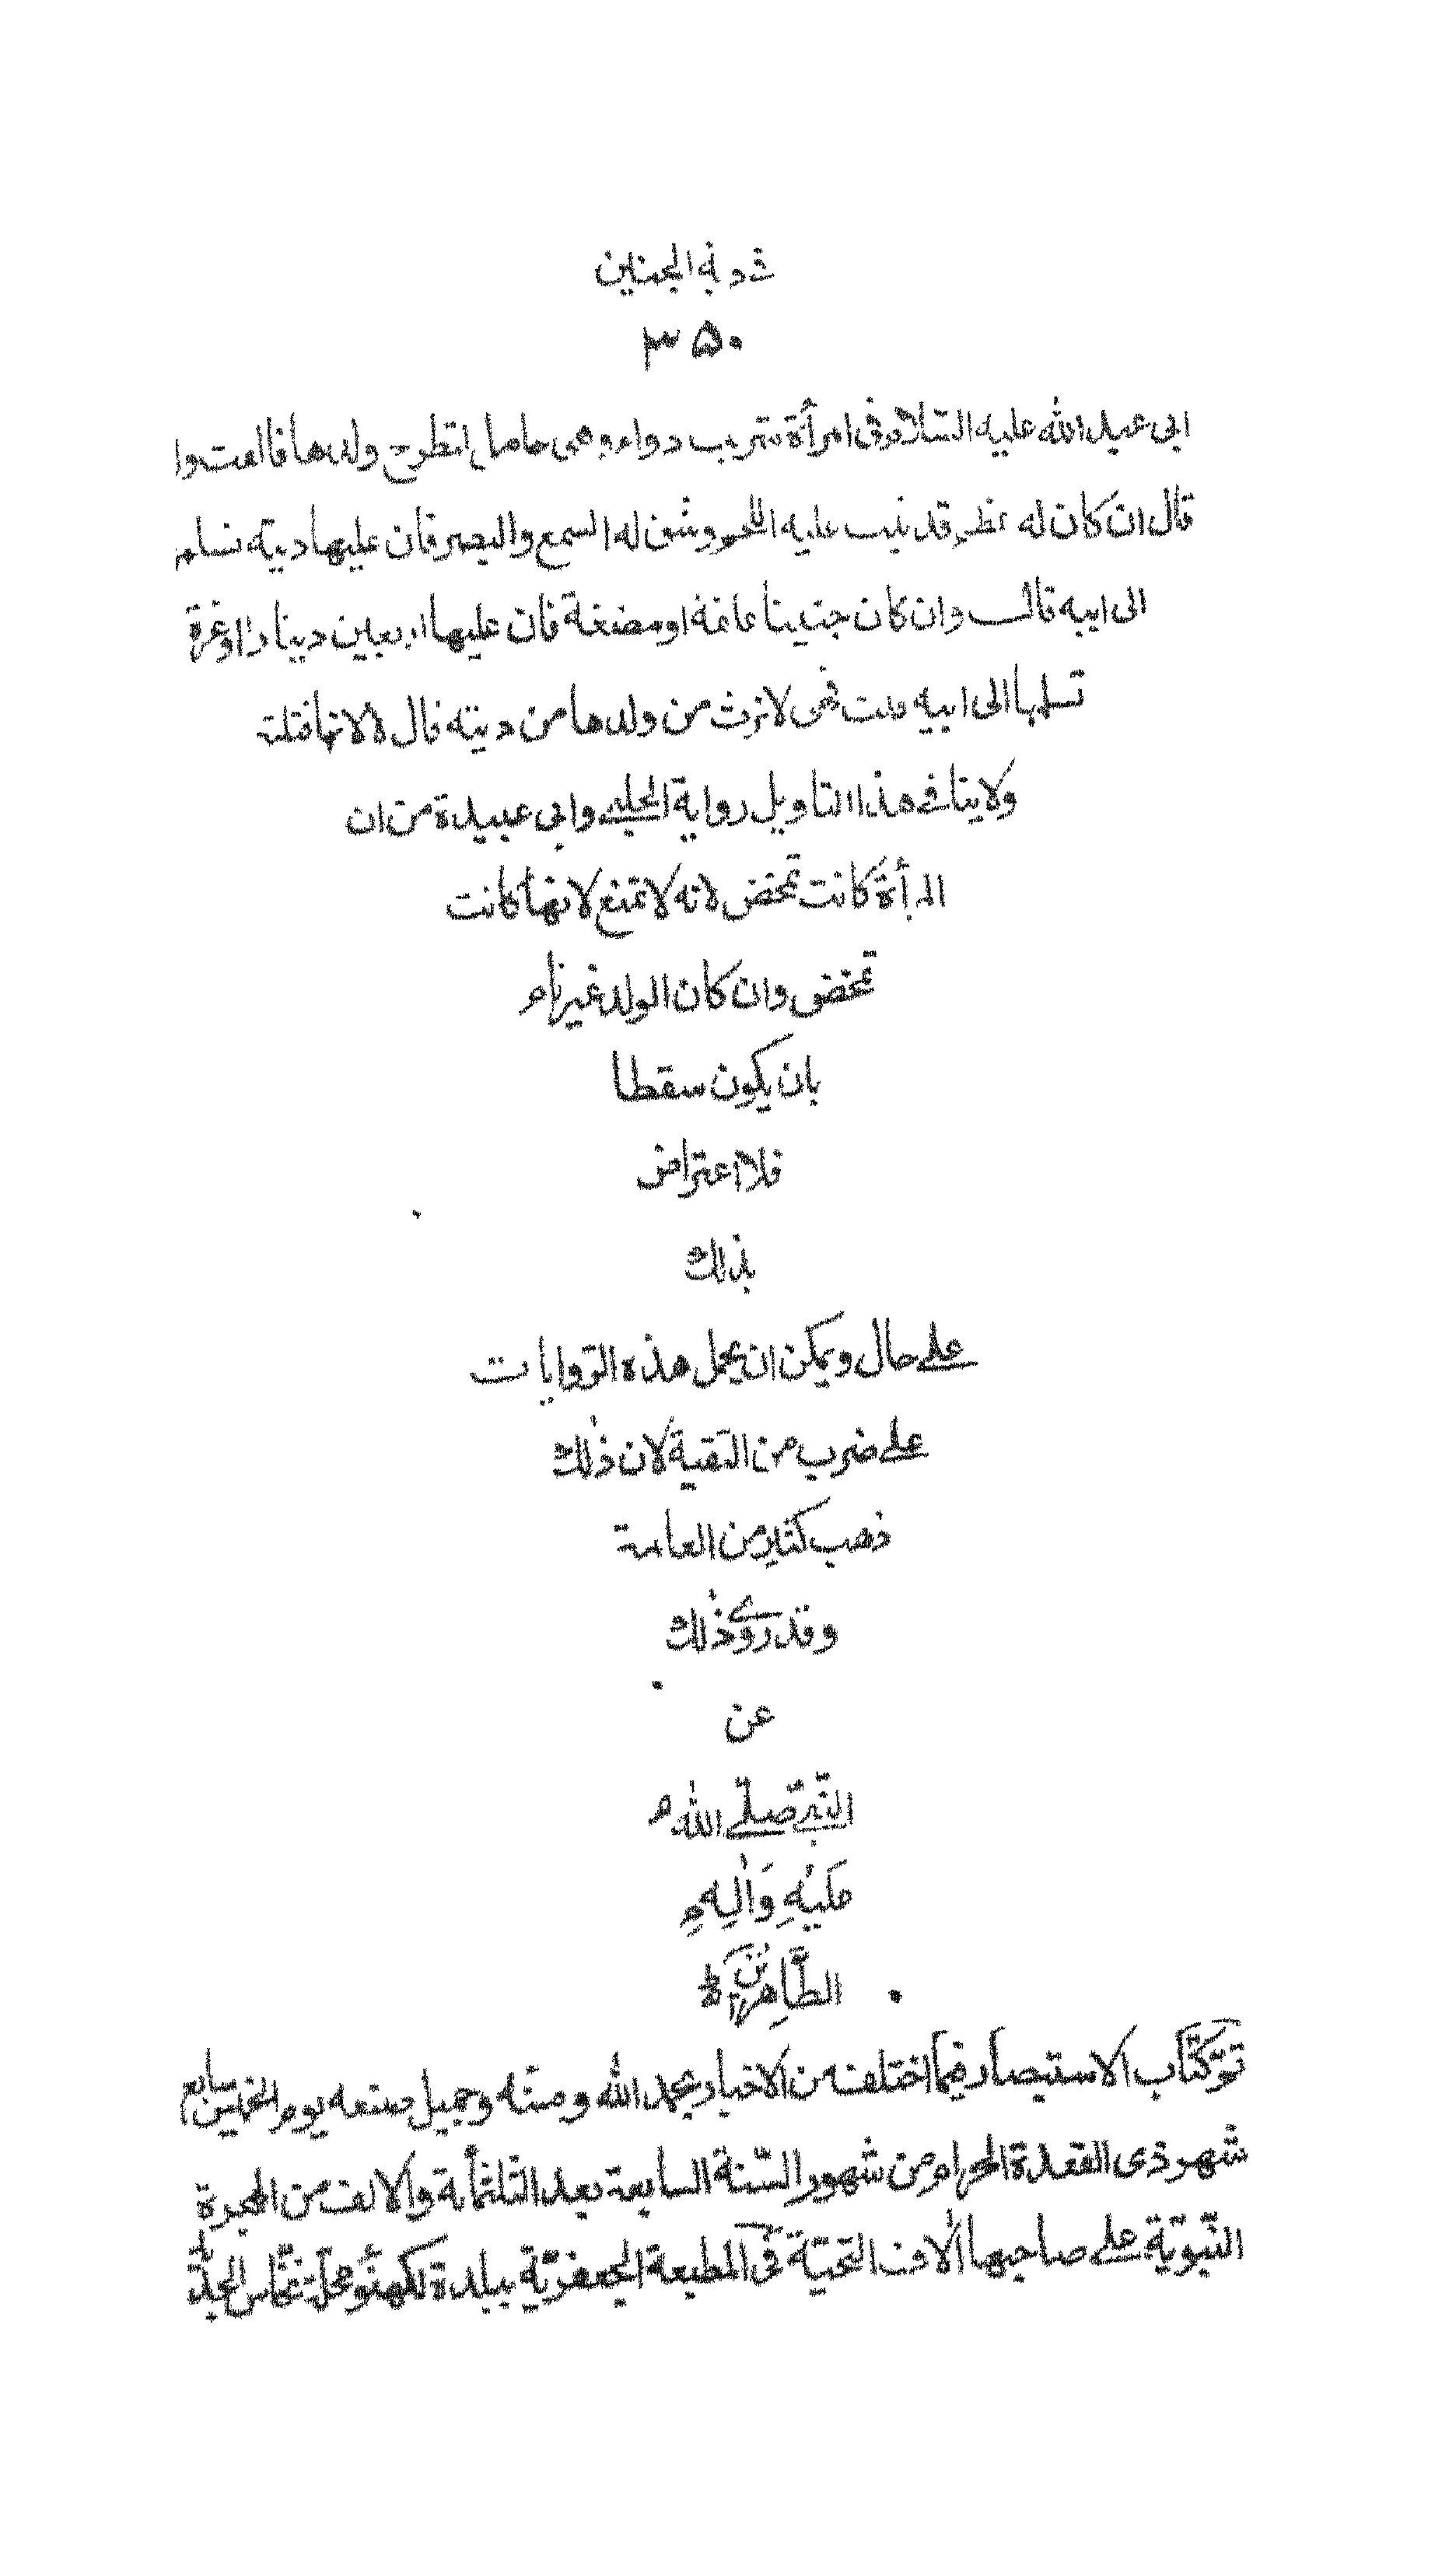 دية الجنين
۳۵۰
ابي عبد الله عليه السلام في امرأة شرب دواء وهي حامل لتطرح ولدها فالقت ولدها
قال ان كان له عظم قد نبت عليه اللحم وشق له السمع والبصر فان عليها دية تسلمها
الى ابيه قال وان كان جنينا علقة او مضغة فان عليها اربعين دينارا او غرة
تسلمها الى ابيه قلت فهي لا ترث من ولدها من ديته قال لا لانها قتلته
ولا ينافي هذا التاويل رواية الحلبي وابي عبيدة من ان
المرأة كانت تمخض لانه لا تمنع لانها كانت
تمخض وان كان الولد غير تام
بان يكون سقطا
فلا اعتراض
بذلك
على حال ويمكن ان يحمل هذه الروايات
على ضرب من التقية لان ذلك
ذهب كثير من العامة
وقد روي ذلك
عن
النبي صلى الله
عليه واله
الطاهرين
تم كتاب الاستبصار فيما اختلف من الاخبار بحمد الله ومنه وجميل صنعه يوم الخميس سابع
شهر ذى القعدة الحرام من شهور السنة السابعة بعد الثلثمائة والالف من الهجرة
النبوية على صاحبها الاف التحية في المطبعة الجعفرية ببلدة لكهنؤ محلة نخاس الجديد